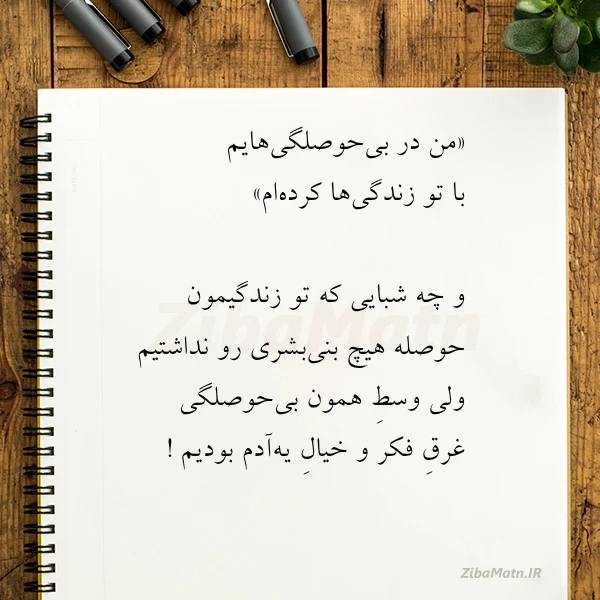 «من در بی‌حوصلگی‌هایم
با تو زندگی‌ها کرده‌ام»
و چه شبایی که تو زندگیمون
حوصله هیچ بنی‌بشری رو نداشتیم
ولی وسطِ همون بی‌حوصلگی
غرقِ فکر و خیالِ یه‌آدم بودیم !
ZibaMatn
ZibaMatn.IR